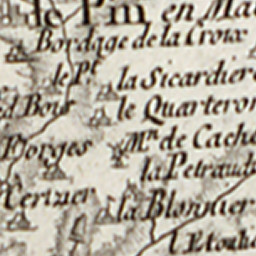 de Pin en Ma
Bordage de la Croix
le Pt. la Sicardiere
ed Bour le Quarteron
Mn. de Cach
Forges
la Petraud
Tertrier la Blonnier
l'Etouli